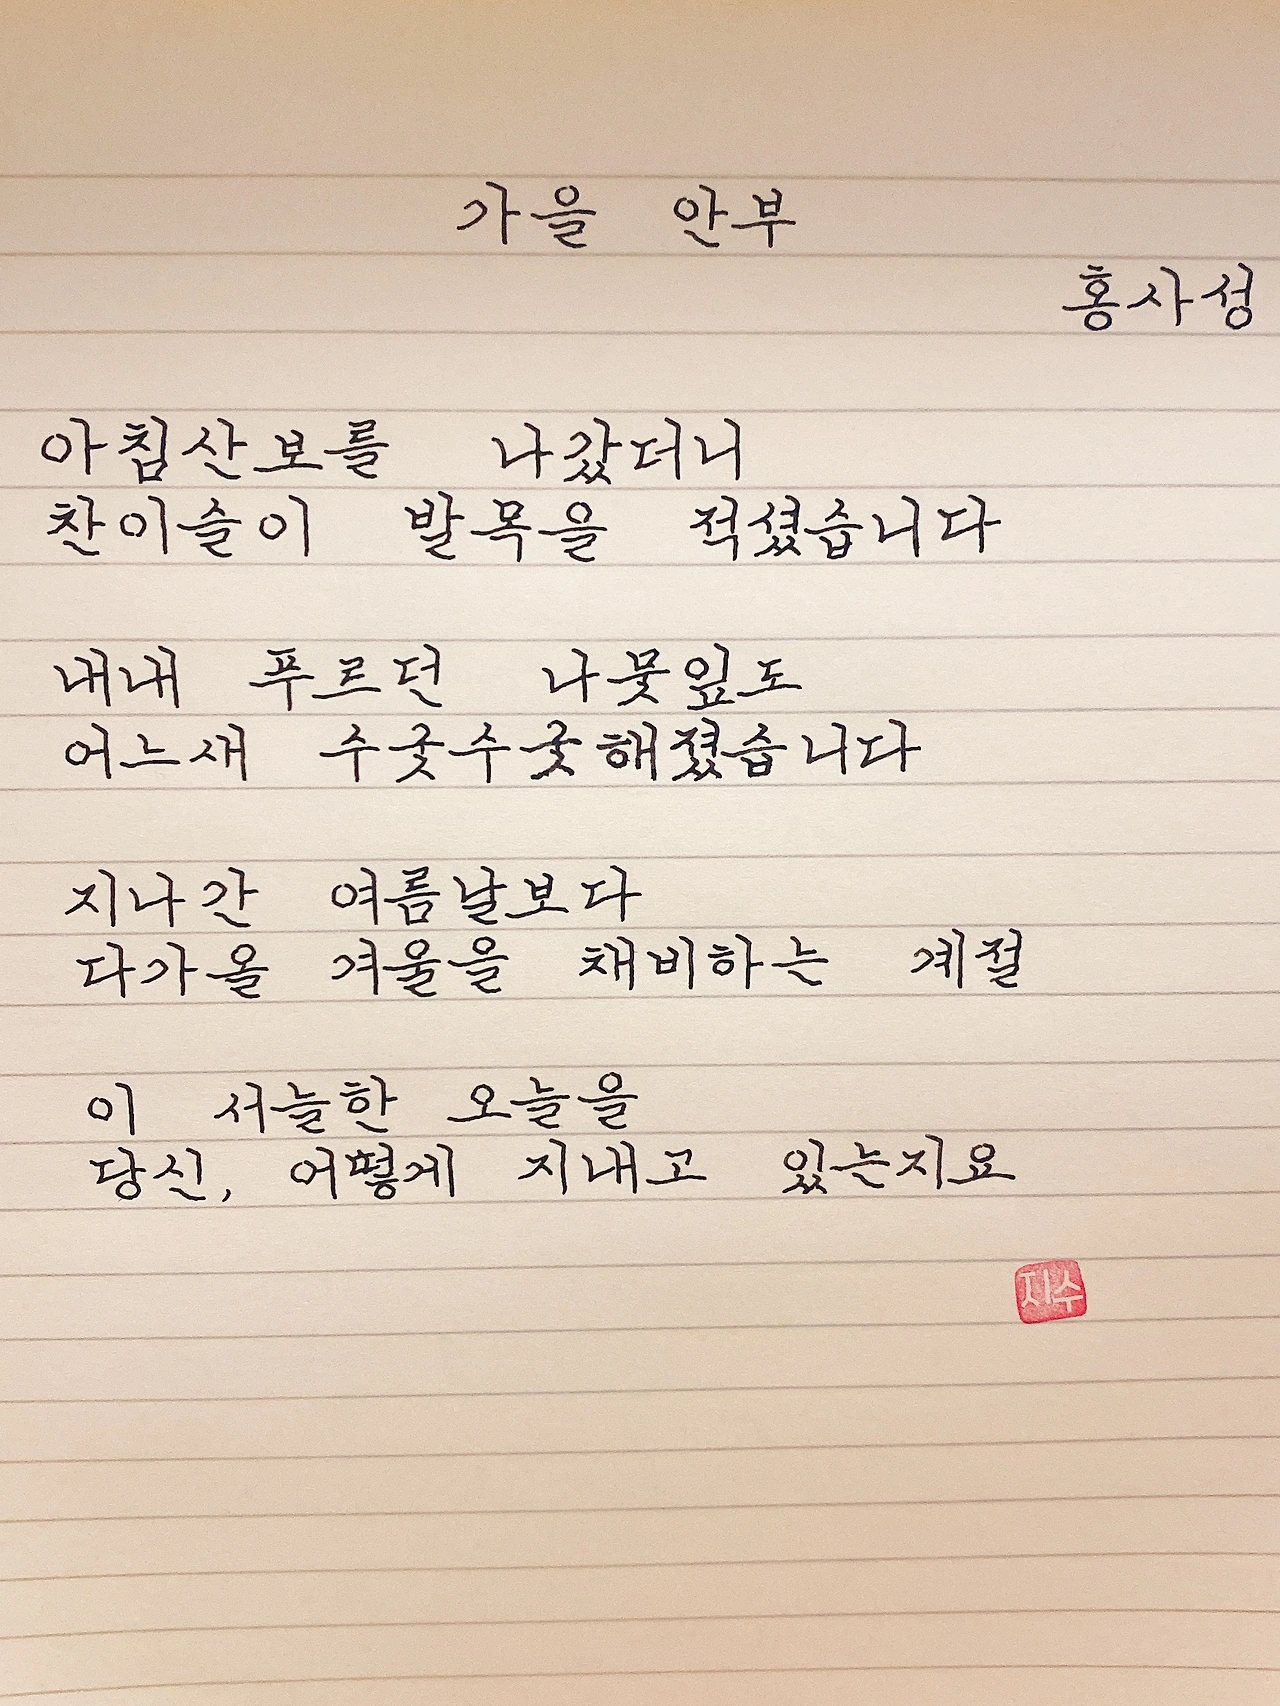 가을 안부
홍사성
아침산보를 나갔더니
찬이슬이 발목을 적셨습니다
내내 푸르던 나뭇잎도
어느새 수굿수굿해졌습니다
지나간 여름날보다
다가올 겨울을 채비하는 계절
이 서늘한 오늘을
당신, 어떻게 지내고 있는지요
지수